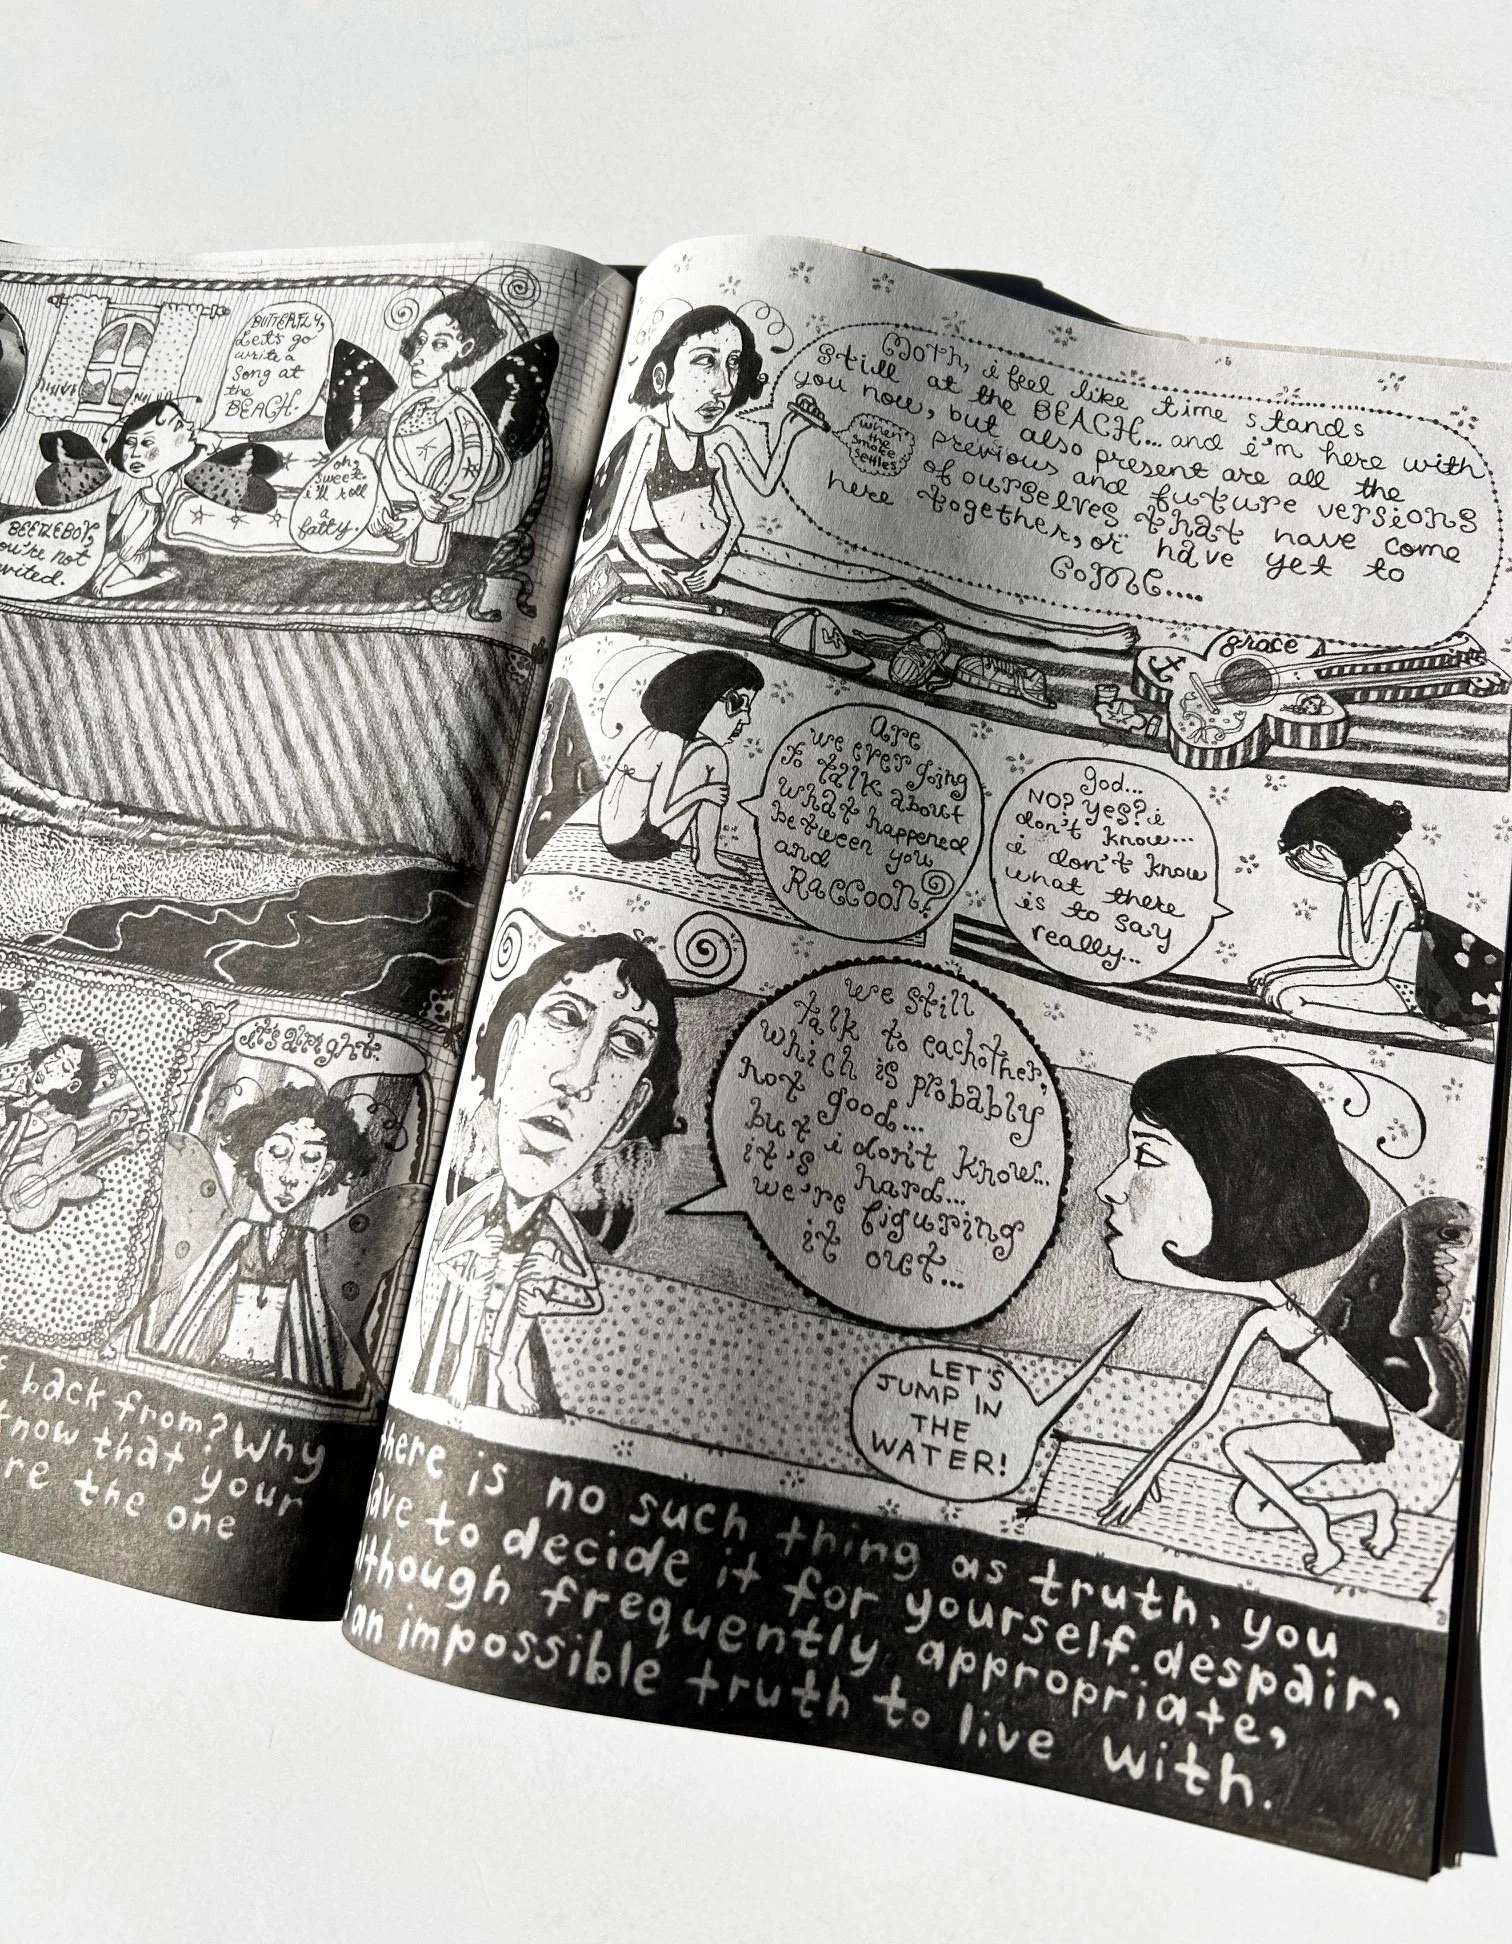 BUTTERFLY,
Let's go
write a
song at
the
BEACH.
oh?
sweet.
i'll roll
a
fatty.
BEETLEBOY,
you're not
it's alright.
back from? Why
know that your
the one
Moth, i feel like time stands
still at the BEACH... and i'm here with
you now, but also present are all the
previous and future versions
of ourselves that have come
here together, or have yet to
COME....
when
the
smoke
settles
LA
grace
are
we ever going
to talk about
what happened
between you
and
RACCOON?
god...
NO? yes? i
don't know...
i don't know
what there
is to say
really...
we still
talk to eachother,
which is probably
not good...
but i don't know...
it's hard...
we're figuring
it out...
LET'S
JUMP IN
THE
WATER!
is no such thing as truth, you
to decide it for yourself. despair,
frequently appropriate,
an impossible truth to live with.